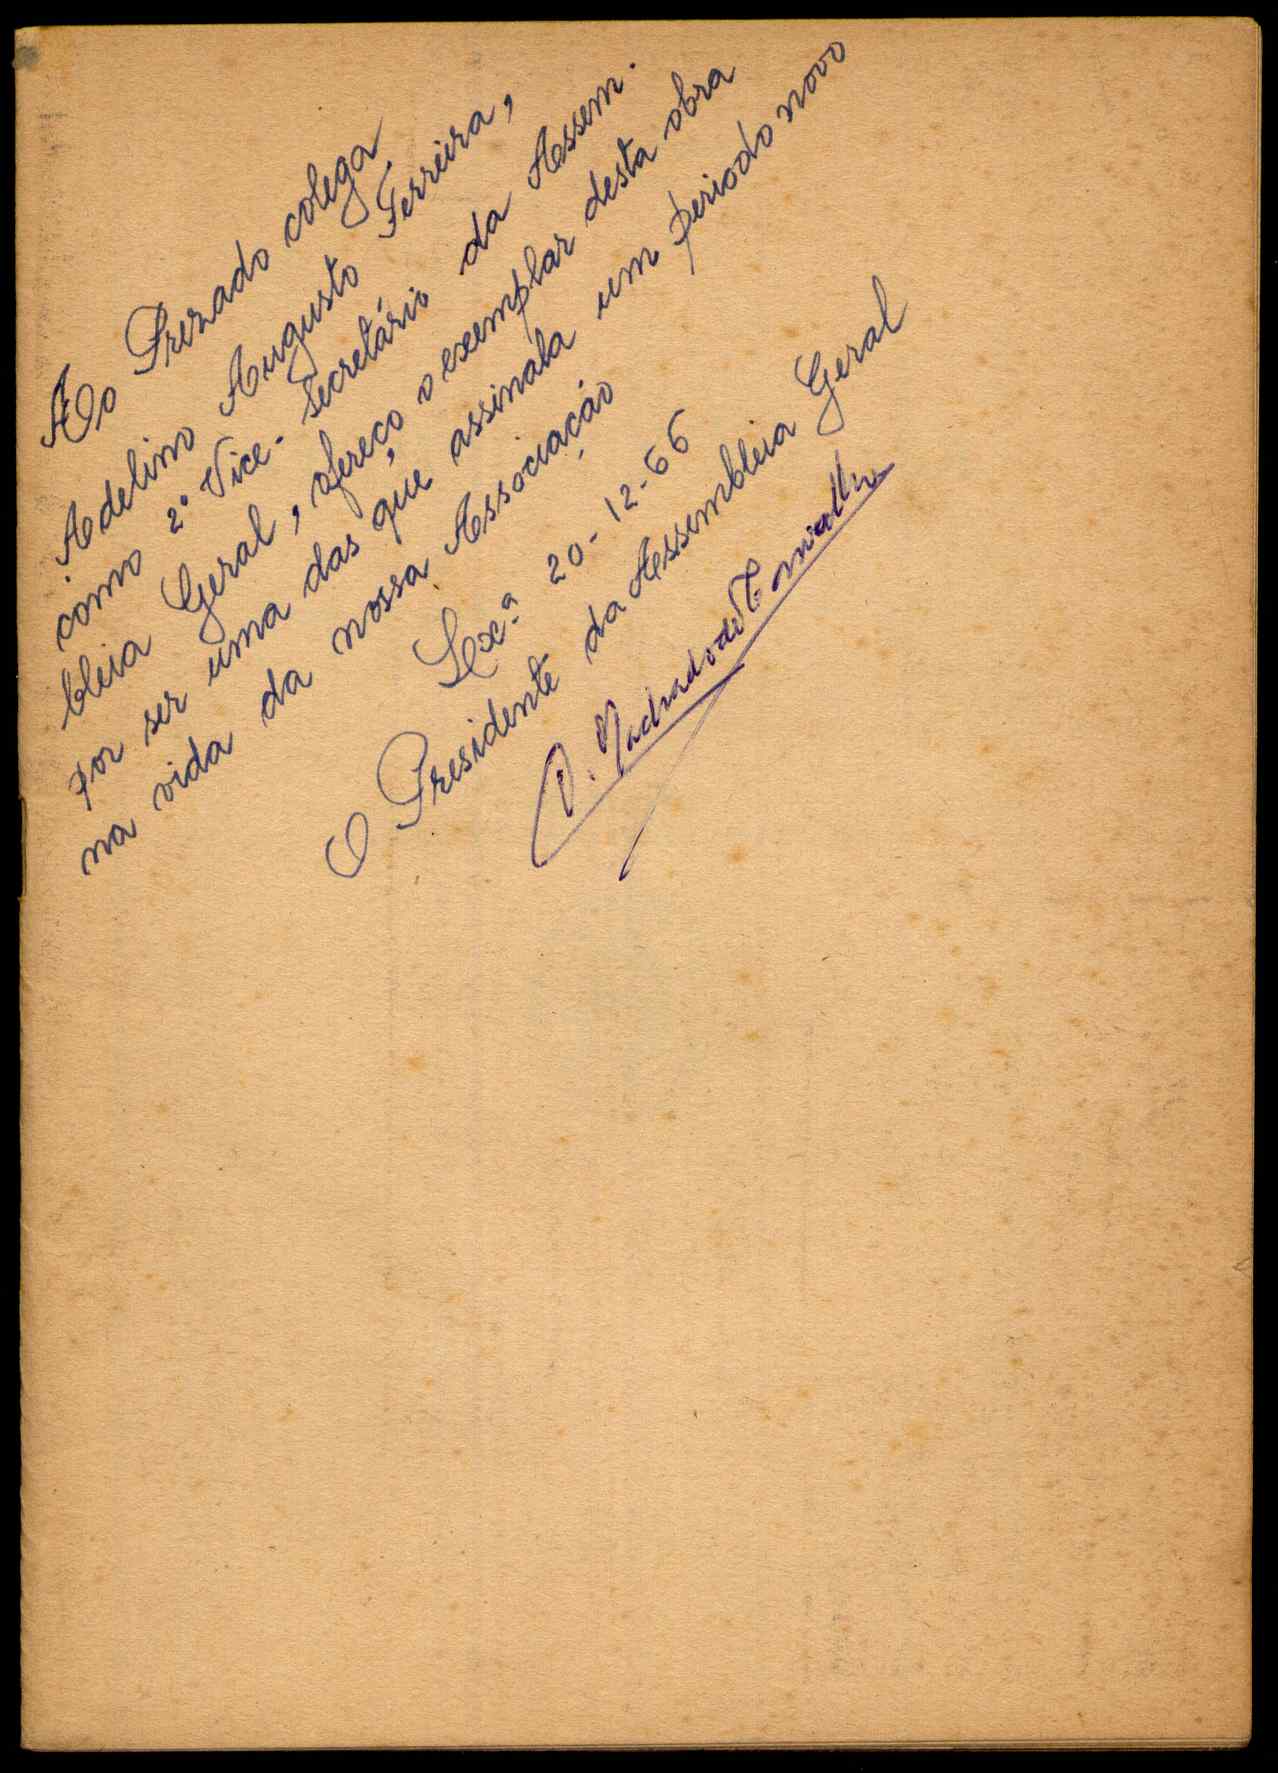 Ao Prezado colega
Adelino Augusto Ferreira,
como 2º Vice-Secretário da Assem.
bleia Geral, ofereço o exemplar desta obra
por ser uma das que assinala um periodo novo
na vida da nossa Associação
Lxª 20-12-66
O Presidente da Assembleia Geral
Machado